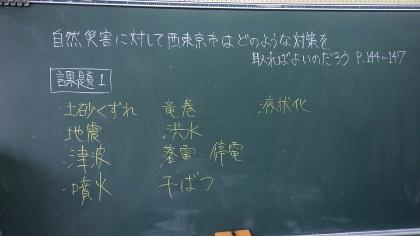 自然災害に対して西東京市はどのような対策を
取ればよいのだろう P.144~147
課題1
・土砂くずれ 竜巻 ・液状化
・地震 ・洪水
・津波 落雷 停電
・噴火 干ばつ